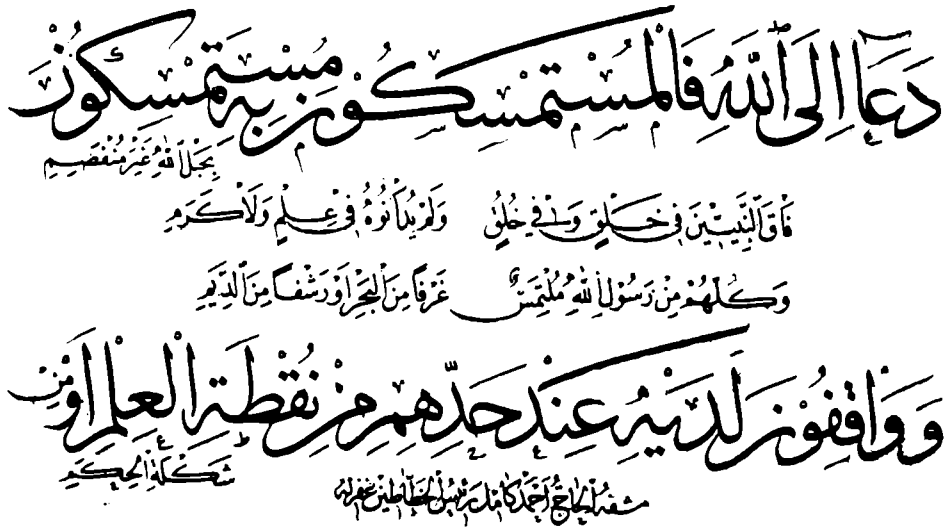 دَعَا إِلَى ٱللّٰهِ فَالْمُسْتَمْسِكُونَ بِهِ مُسْتَمْسِكُونَ
بِحَبْلِ ٱللّٰهِ غَيْرِ مُنْفَصِمِ
فَاقَ ٱلنَّبِيِّينَ فِي خَلْقٍ وَفِي خُلُقٍ وَلَمْ يُدَانُوهُ فِي عِلْمٍ وَلَا كَرَمِ
وَكُلُّهُمْ مِنْ رَسُولِ ٱللّٰهِ مُلْتَمِسٌ غَرْفًا مِنَ الْبَحْرِ أَوْ رَشْفًا مِنَ ٱلدِّيَمِ
وَوَاقِفُونَ لَدَيْهِ عِنْدَ حَدِّهِمِ مِنْ نُقْطَةِ الْعِلْمِ أَوْ مِنْ
شَكْلَةِ الْحِكَمِ
مشقه الحاج أحمد كامل رئيس الخطاطين غفر له